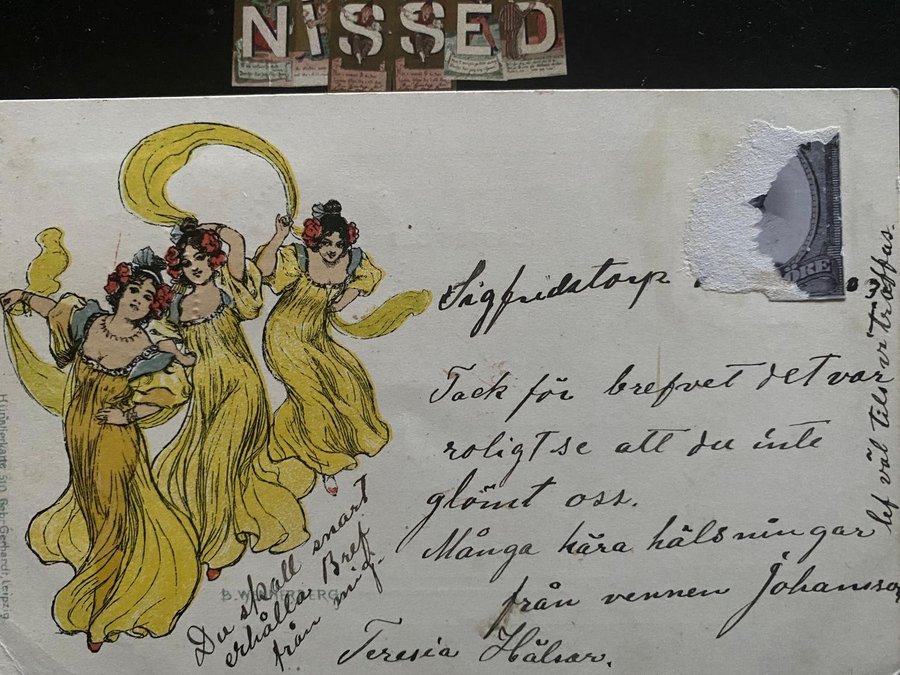 NISSED
ÖRE
Sigfridstorp
Tack för brefvet det var
roligt se att du inte
glömt oss.
Många kära hälsningar
från vennen Johansson
Teresia Hälsar.
lef väl tils vi träffas.
Du skall snart
erhålla Bref
från mig.
B. WENNERBERG
Künstlerkarte 510 Geb. Gerhardt, Leipzig